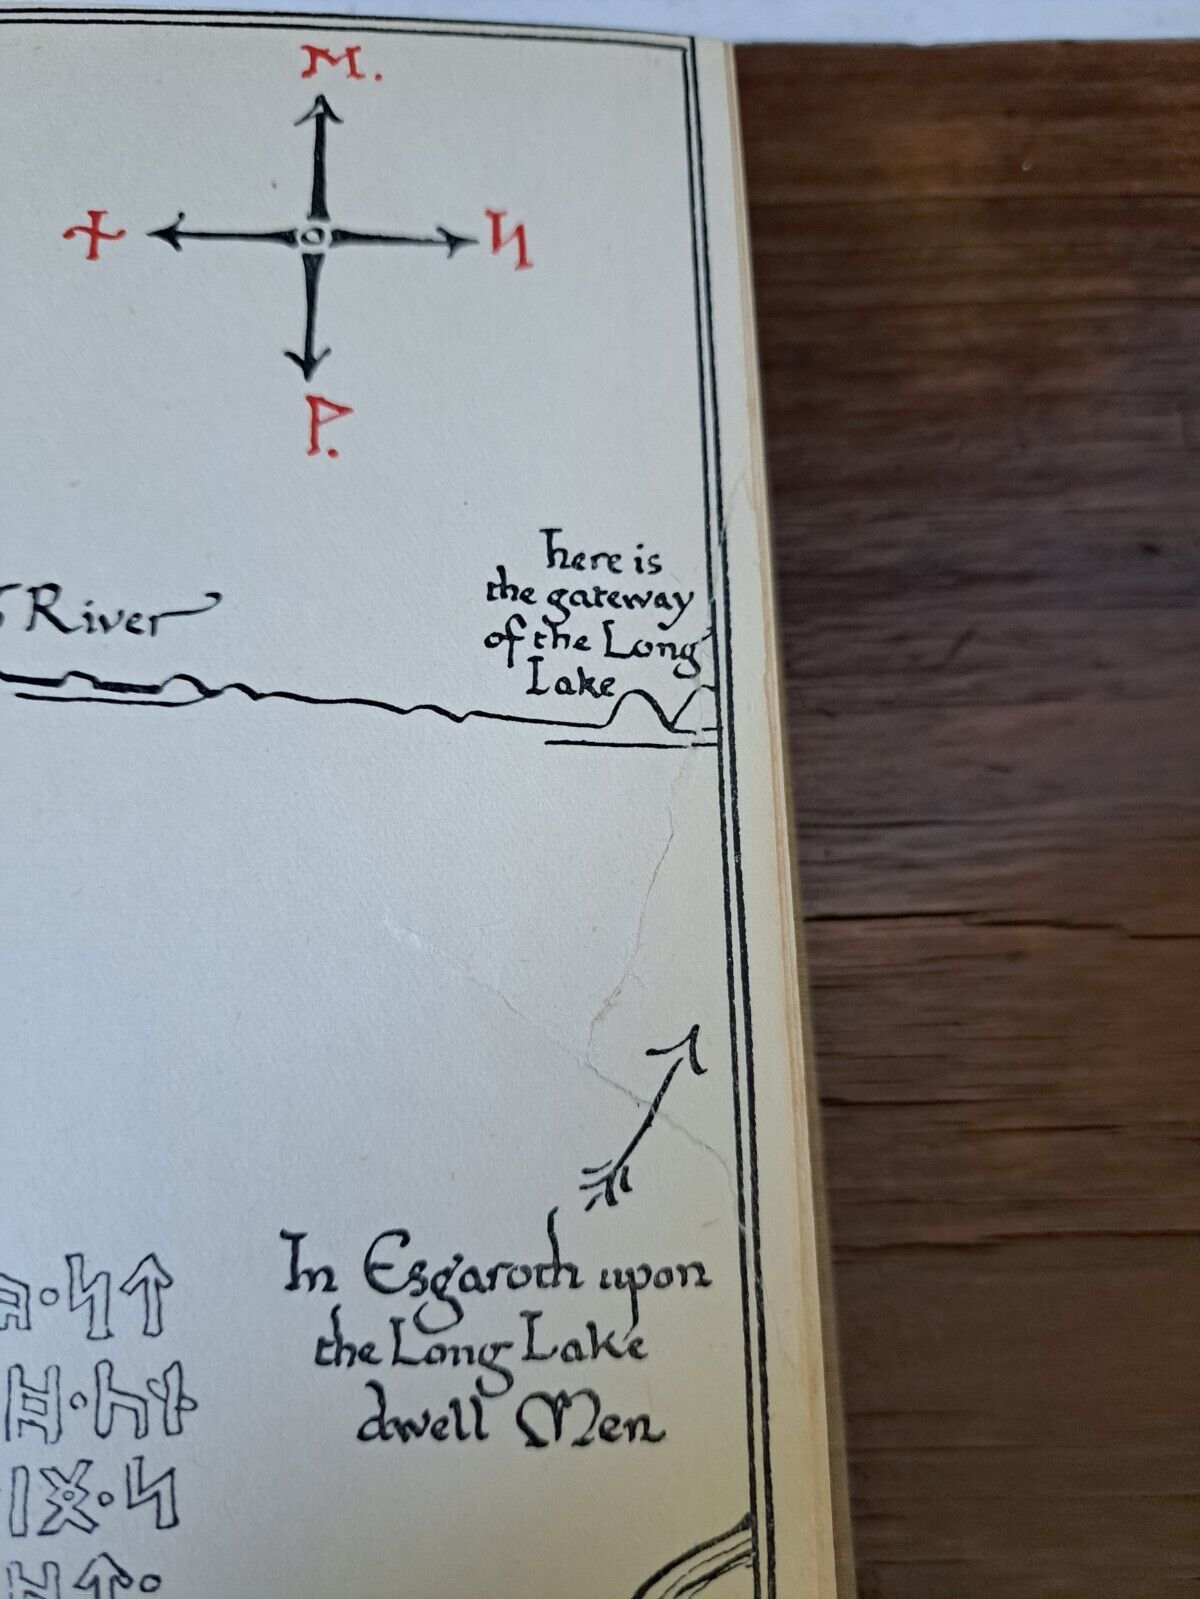 ᛖ.
ᚾ ᛋ
ᚹ.
here is
the gateway
of the Long
Lake
River
In Esgaroth upon
the Long Lake
dwell Men
ᚣ·ᛋᛏ
ᚻ·ᚳᚾ
ᛁᛝ·ᛋ
ᚻᛏ·